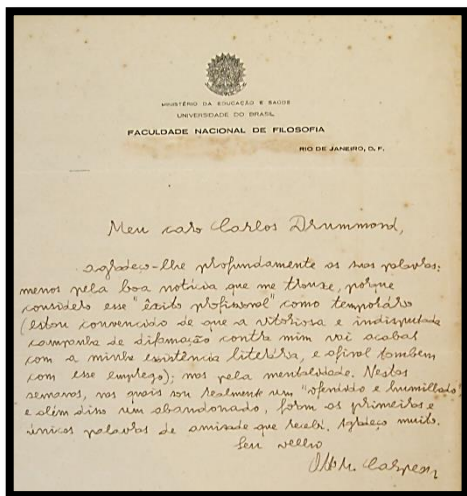 MINISTÉRIO DA EDUCAÇÃO E SAÚDE
UNIVERSIDADE DO BRASIL
FACULDADE NACIONAL DE FILOSOFIA
RIO DE JANEIRO, D. F.
Meu caro Carlos Drummond,
agradeço-lhe profundamente as suas palavras:
menos pela boa notícia que me trouxe, porque
considero esse "êxito profissional" como temporário
(estou convencido de que a vitoriosa e indisputada
campanha de difamação contra mim vai acabar
com a minha existência literária, e afinal também
com esse emprego); mas pela mentalidade. Nestas
semanas, nas quais sou realmente um "ofendido e humilhado"
e além disso um abandonado, foram as primeiras e
únicas palavras de amizade que recebi. Agradeço muito.
Seu velho
Otto M. Carpeaux